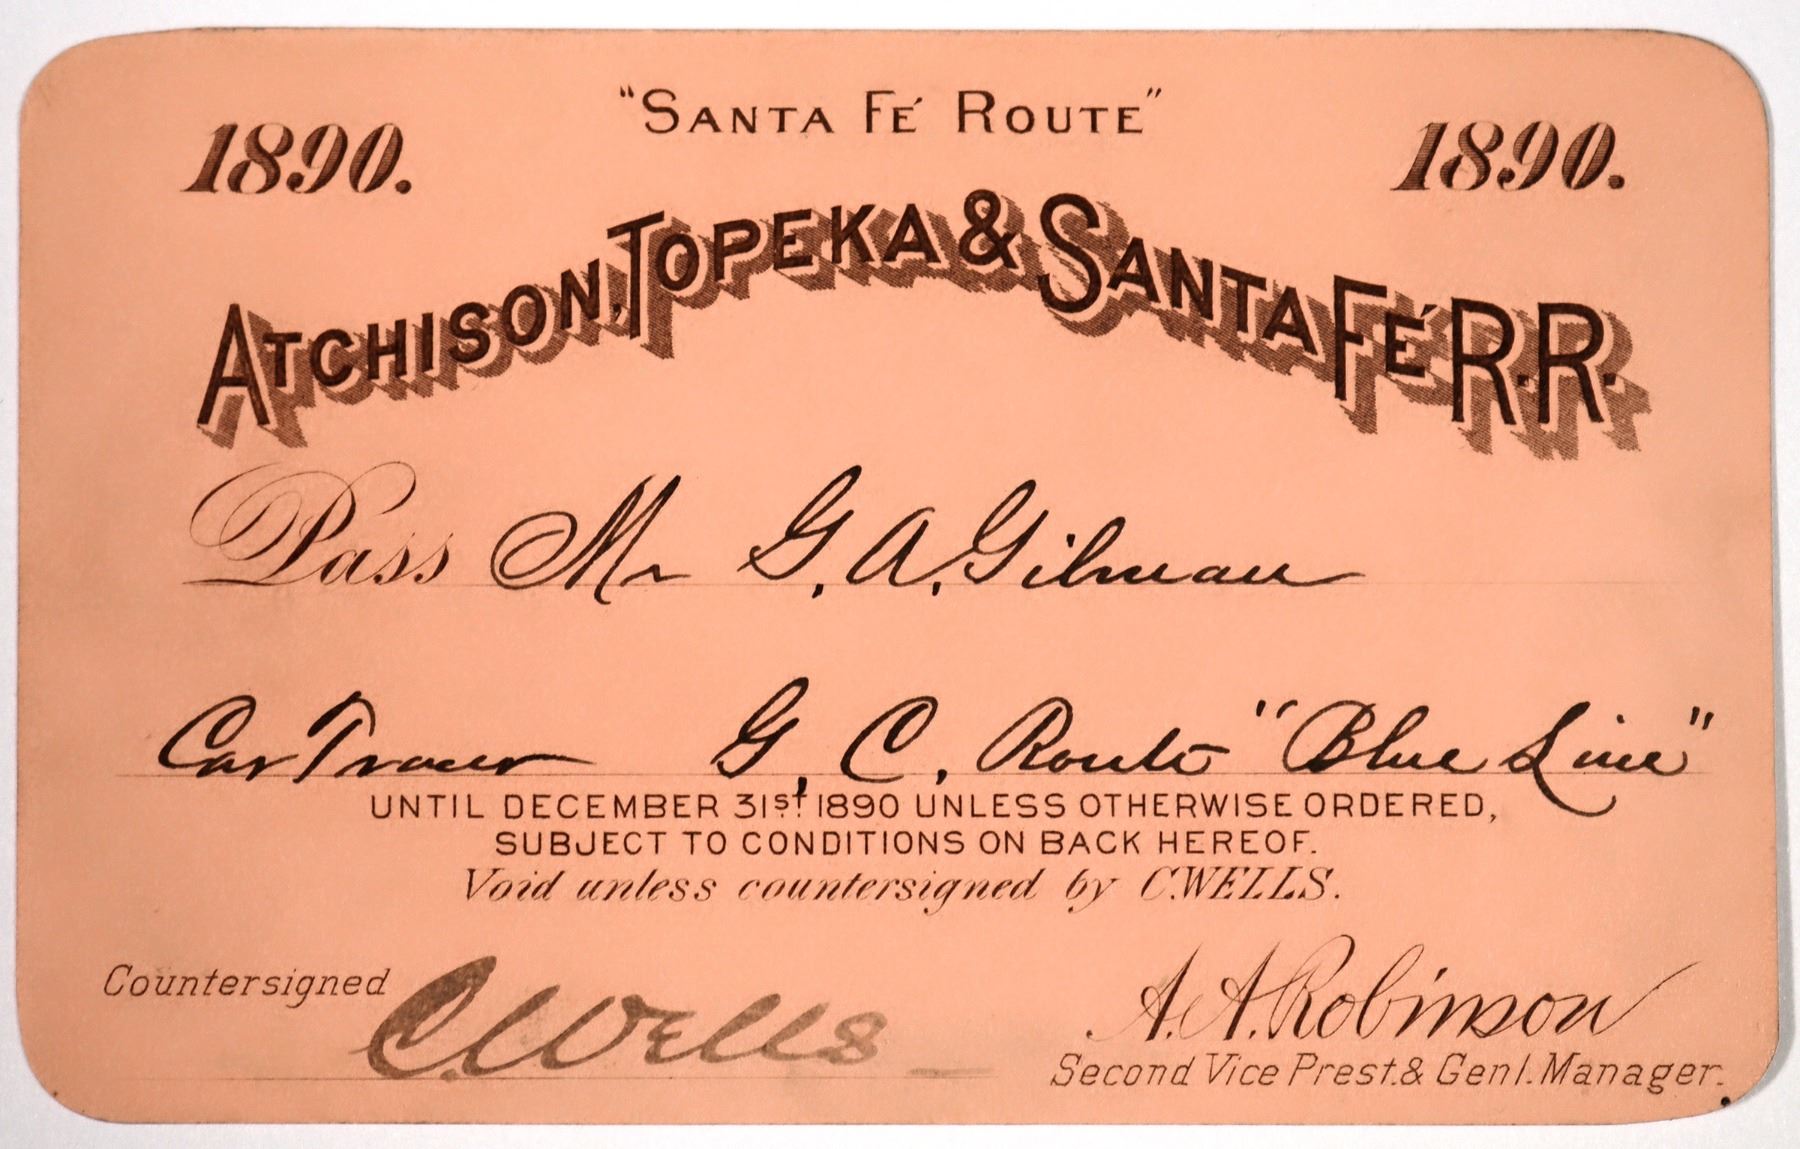 "SANTA FÉ ROUTE"
1890. 1890.
ATCHISON, TOPEKA & SANTA FÉ R.R.
Pass Mr G. A. Gilman
Car Tracer G. C. Route "Blue Line"
UNTIL DECEMBER 31ST 1890 UNLESS OTHERWISE ORDERED,
SUBJECT TO CONDITIONS ON BACK HEREOF.
Void unless countersigned by C.WELLS.
Countersigned C. Wells
A. A. Robinson
Second Vice Prest. & Genl. Manager.